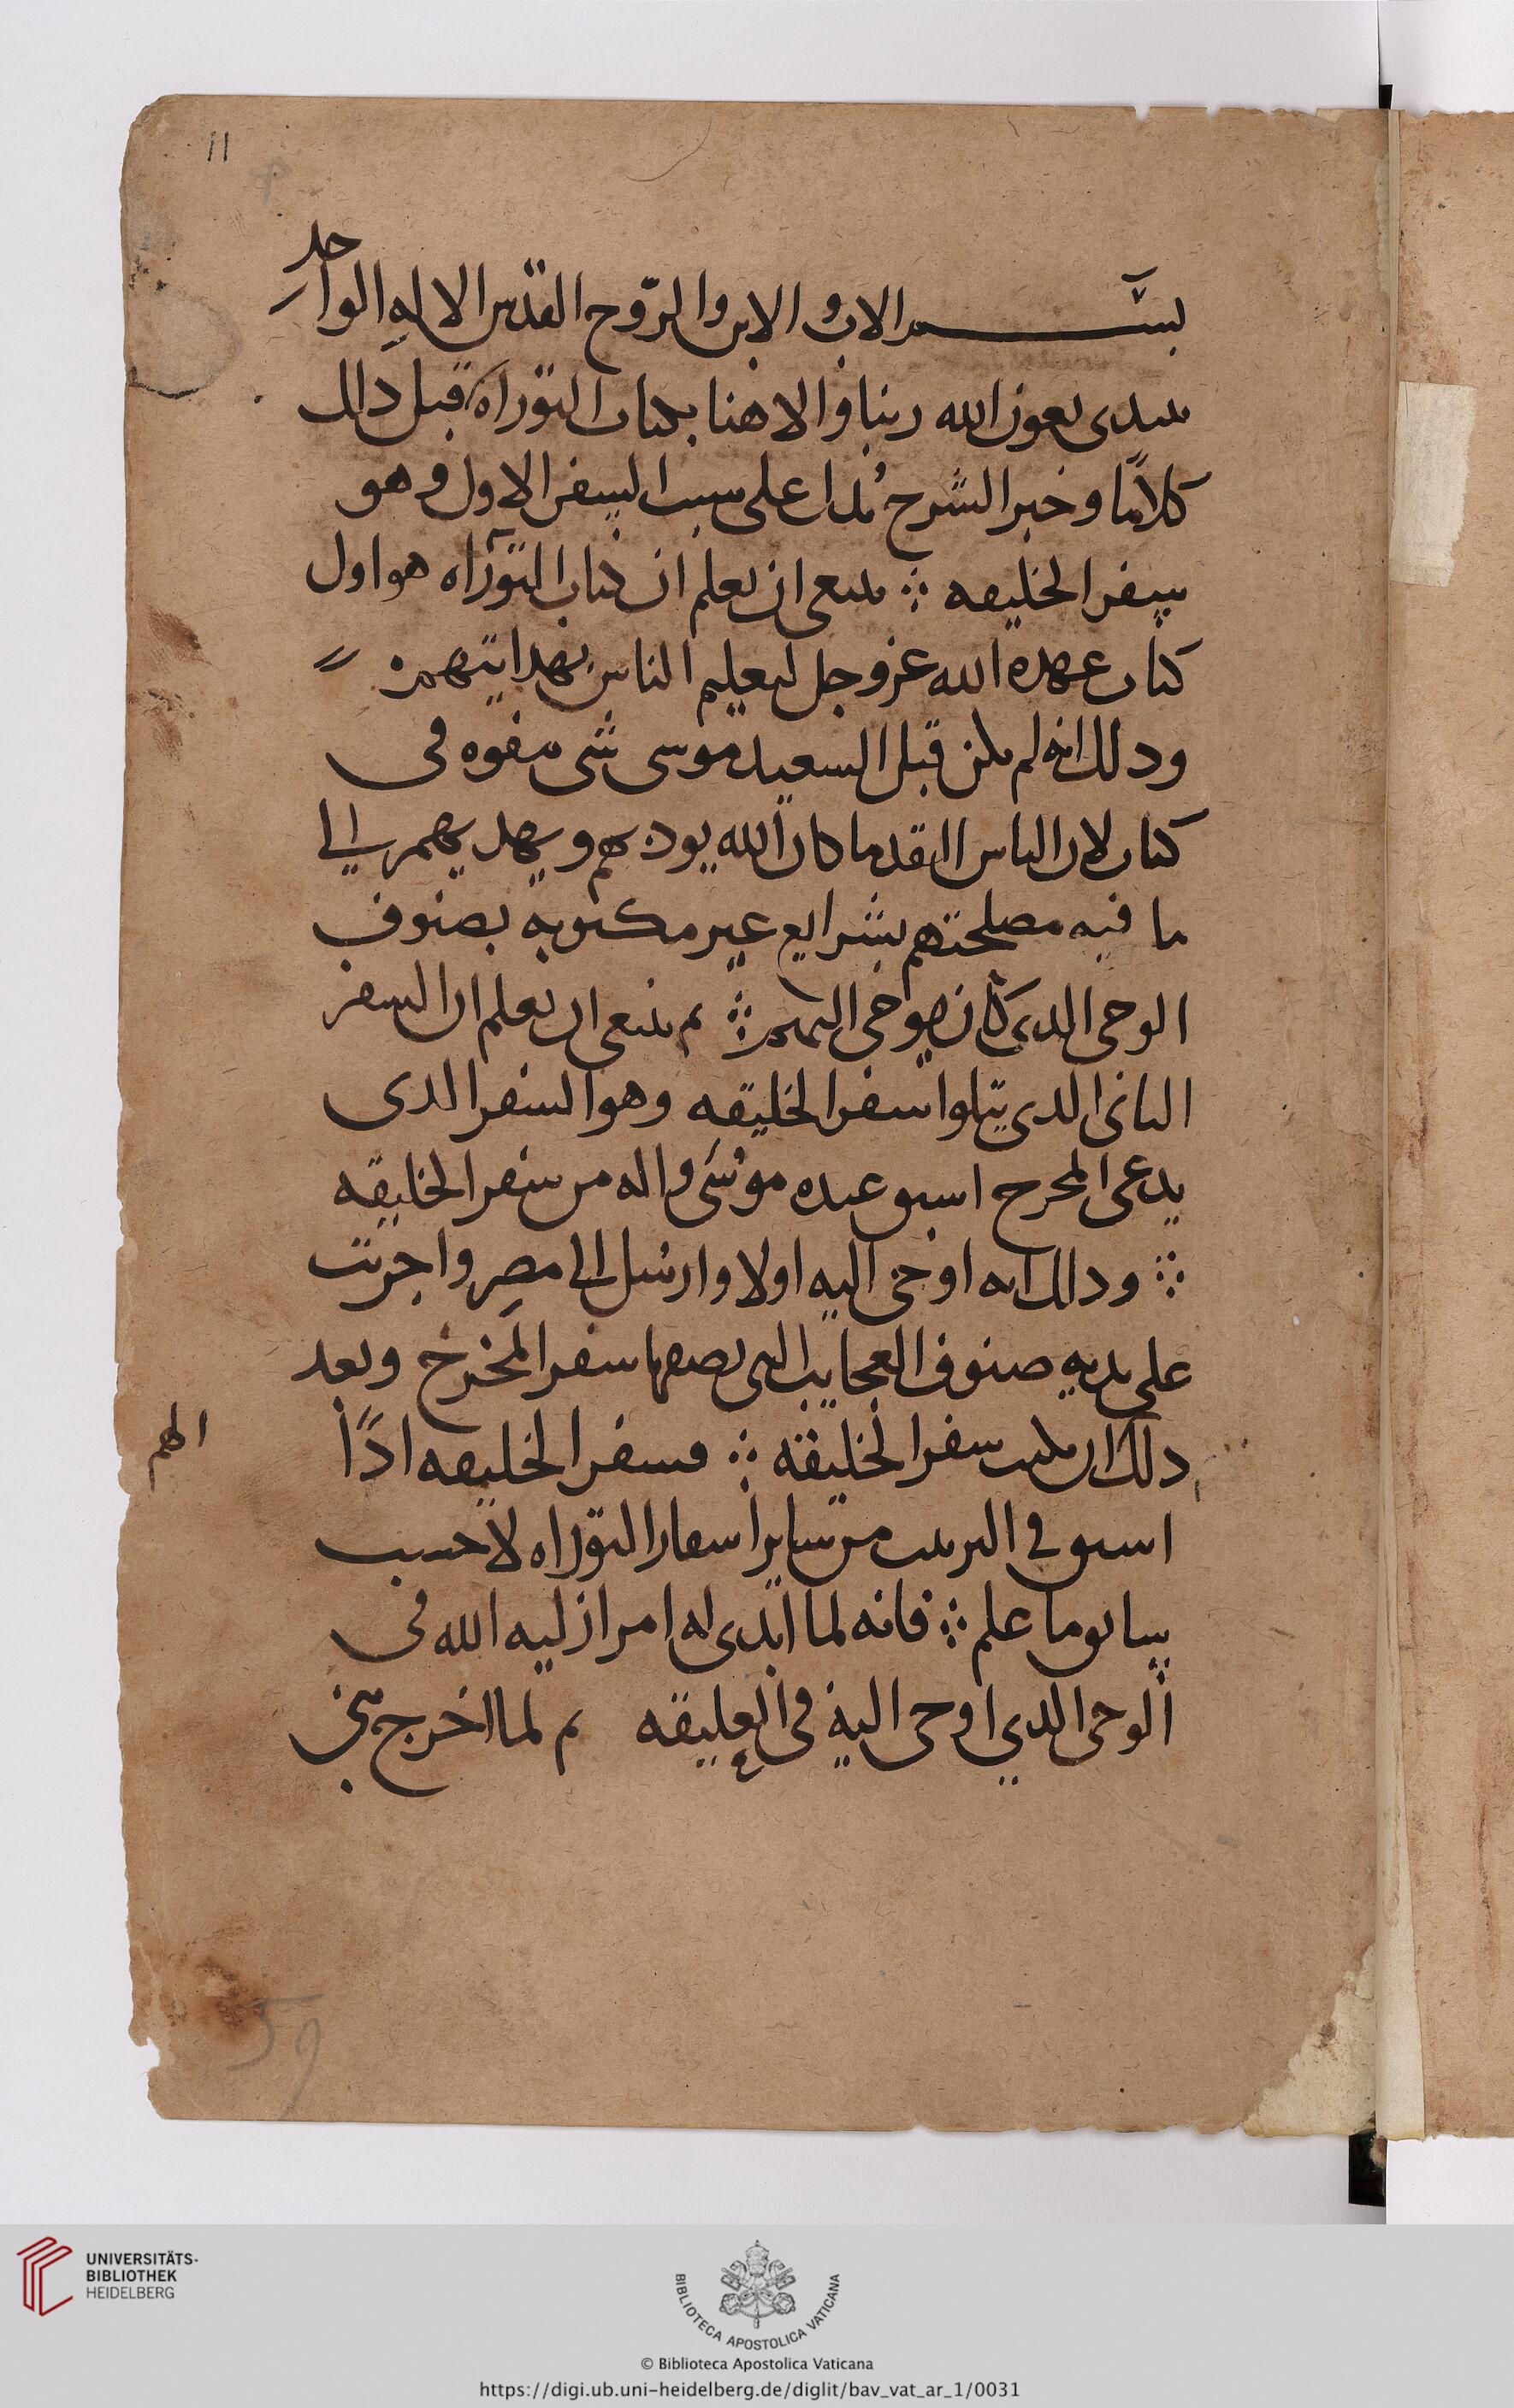 11
بسم الاب والابن والروح القدس الاله الواحد
نبتدى بعون الله ربنا والاهنا بكتاب التوراه قبل ذالك
كلامًا وخبر الشرح يُدل على سبب السفر الاول وهو
سفر الخليقه ۞ ينبغى ان تعلم ان كتاب التوراه هو اول
كتاب عهده الله عز وجل لتعليم الناس بهدايتهم
ودلك انه لم يكن قبل السعيد موسى شى متفوه فى
كتاب لان الناس القدما كان الله يودبهم ويهديهم الى
ما فيه مصلحتهم بشرايع غير مكتوبه بصنوف
الوحى الدى كان يوحى اليهم ۞ ثم ينبغى ان تعلم ان السفر
الثانى الدى يتلوا سفر الخليقه وهو السفر الدى
يدعى المخرج اسبق عبده موسى واله من سفر الخليقه
۞ ودالك انه اوحى اليه اولا وارسل الى مصر واجريت
على يديه صنوف العجايب التى يصفها سفر المخرج وبعد
دلك ان يكتب سفر الخليقه ۞ فسفر الخليقه ادًا
الهم
اسبق فى الترتيب من ساير اسفار التوراه لا حسب
سابق ما علم ۞ فانه لما ابتدى له امر ازليه الله فى
الوحى الدي اوحى اليه فى العليقه ثم لما اخرج بنى
59
UNIVERSITÄTS-
BIBLIOTHEK
HEIDELBERG
BIBLIOTECA APOSTOLICA VATICANA
© Biblioteca Apostolica Vaticana
https://digi.ub.uni-heidelberg.de/diglit/bav_vat_ar_1/0031